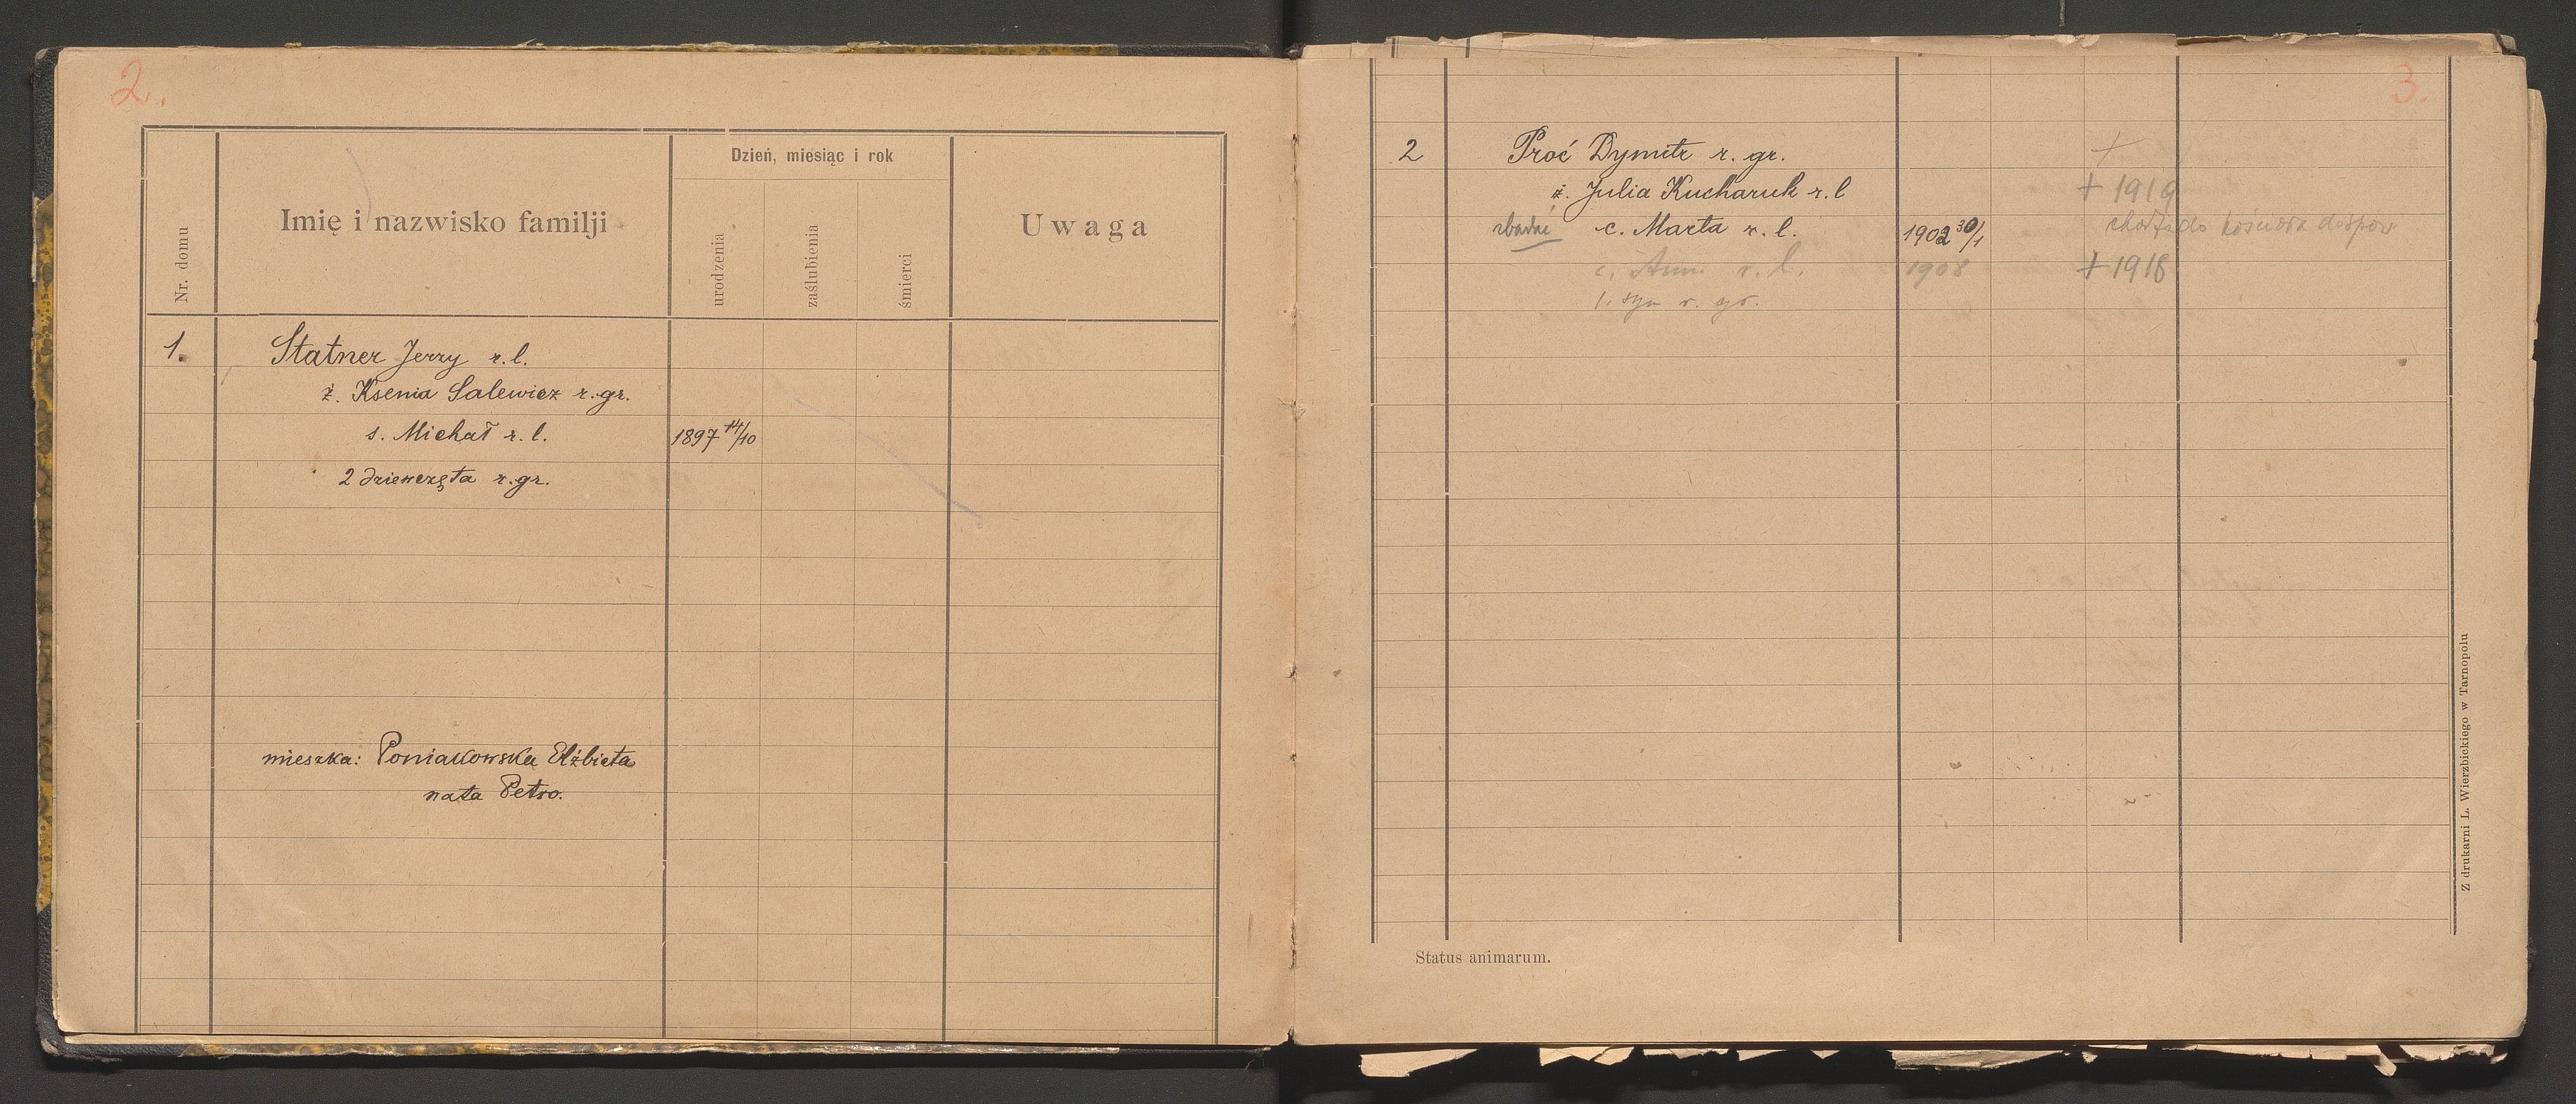 2.
Dzień, miesiąc i rok
Nr. domu
Imię i nazwisko familji
urodzenia
zaślubienia
śmierci
Uwaga
1.
Statner Jerzy r. l.
ż. Ksenia Salewicz r. gr.
s. Michał r. l. 1897 14/10
2 dziewczęta r. gr.
mieszka: Poniatowska Elżbieta
nata Petro.
3.
2 Proć Dymitr r. gr. +
ż. Julia Kucharuk r. l + 1919
zbadać c. Marta r. l. 1902 30/1 chodzi do kościoła do spow.
c. Anna r. l. 1908 + 1918
1. syn r. gr.
Status animarum.
Z drukarni L. Wierzbickiego w Tarnopolu